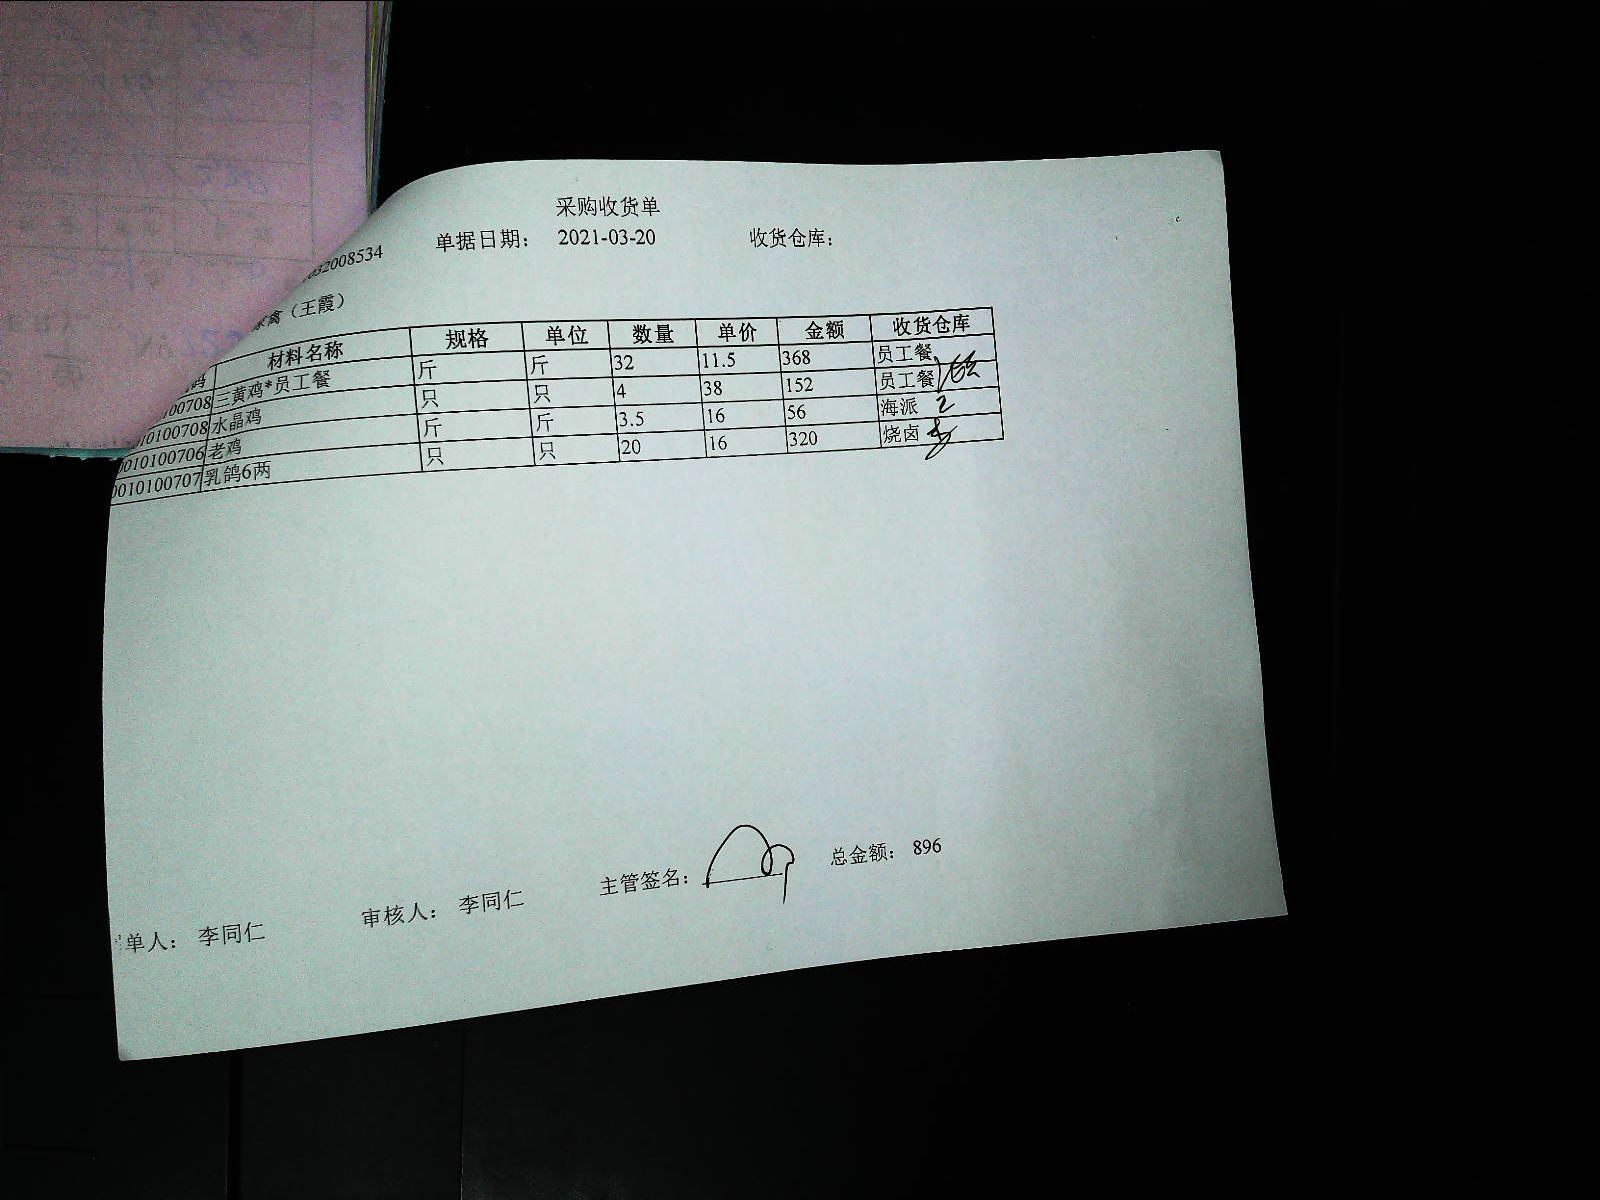 采购收货单
032008534 单据日期： 2021-03-20 收货仓库：
家禽（王霞）
码 材料名称 规格 单位 数量 单价 金额 收货仓库
00708 三黄鸡*员工餐 斤 斤 32 11.5 368 员工餐
010100708 水晶鸡 只 只 4 38 152 员工餐
0010100706 老鸡 斤 斤 3.5 16 56 海派
0010100707 乳鸽6两 只 只 20 16 320 烧卤
单人： 李同仁 审核人： 李同仁 主管签名： 总金额： 896